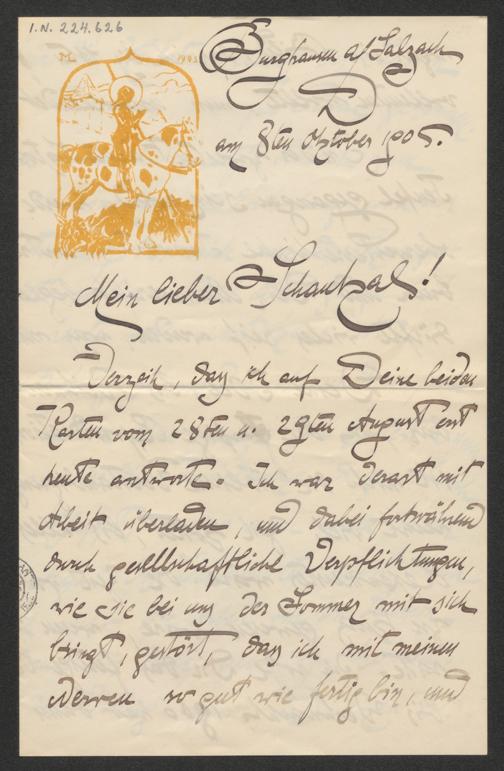 I.N. 224.626
M 1903
Burghausen a/Salzach
am 8ten Oktober 1905.
Mein lieber Schaukal!
Verzeih, daß ich auf Deine beiden
Karten vom 28ten u. 29ten August erst
heute antworte. Ich war derart mit
Arbeit überladen, und dabei fortwährend
durch gesellschaftliche Verpflichtungen,
wie sie bei uns der Sommer mit sich
bringt, gestört, daß ich mit meinen
Nerven so gut wie fertig bin, und